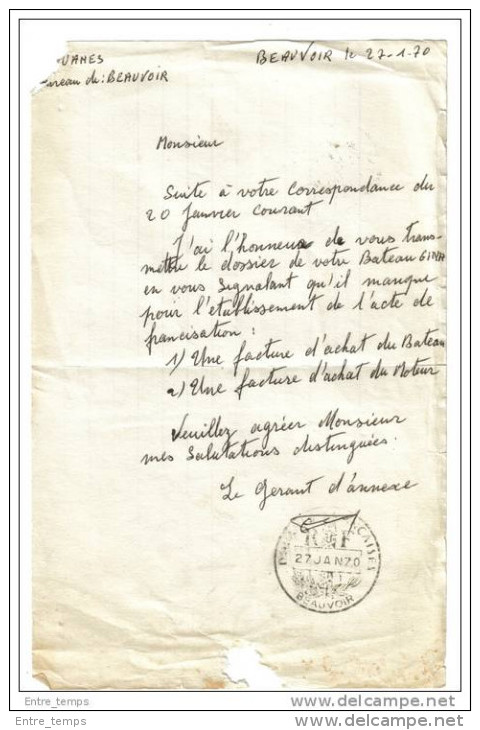 OUANES
ureau de: BEAUVOIR
BEAUVOIR le 27-1-70
Monsieur
Suite à votre Correspondance du
20 Janvier Courant
J'ai l'honneur de vous trans-
mettre le dossier de votre Bateau GINA
en vous signalant qu'il manque
pour l'etablissement de l'acte de
francisation :
1) Une facture d'achat du Bateau
2) Une facture d'achat du Moteur
Veuillez agréer Monsieur
mes Salutations distinguées.
Le Gerant d'annexe
CAISES
R F
27 JAN 70
BEAUVOIR
Entre_temps
www.delcampe.net
Entre_temps
www.delcampe.net